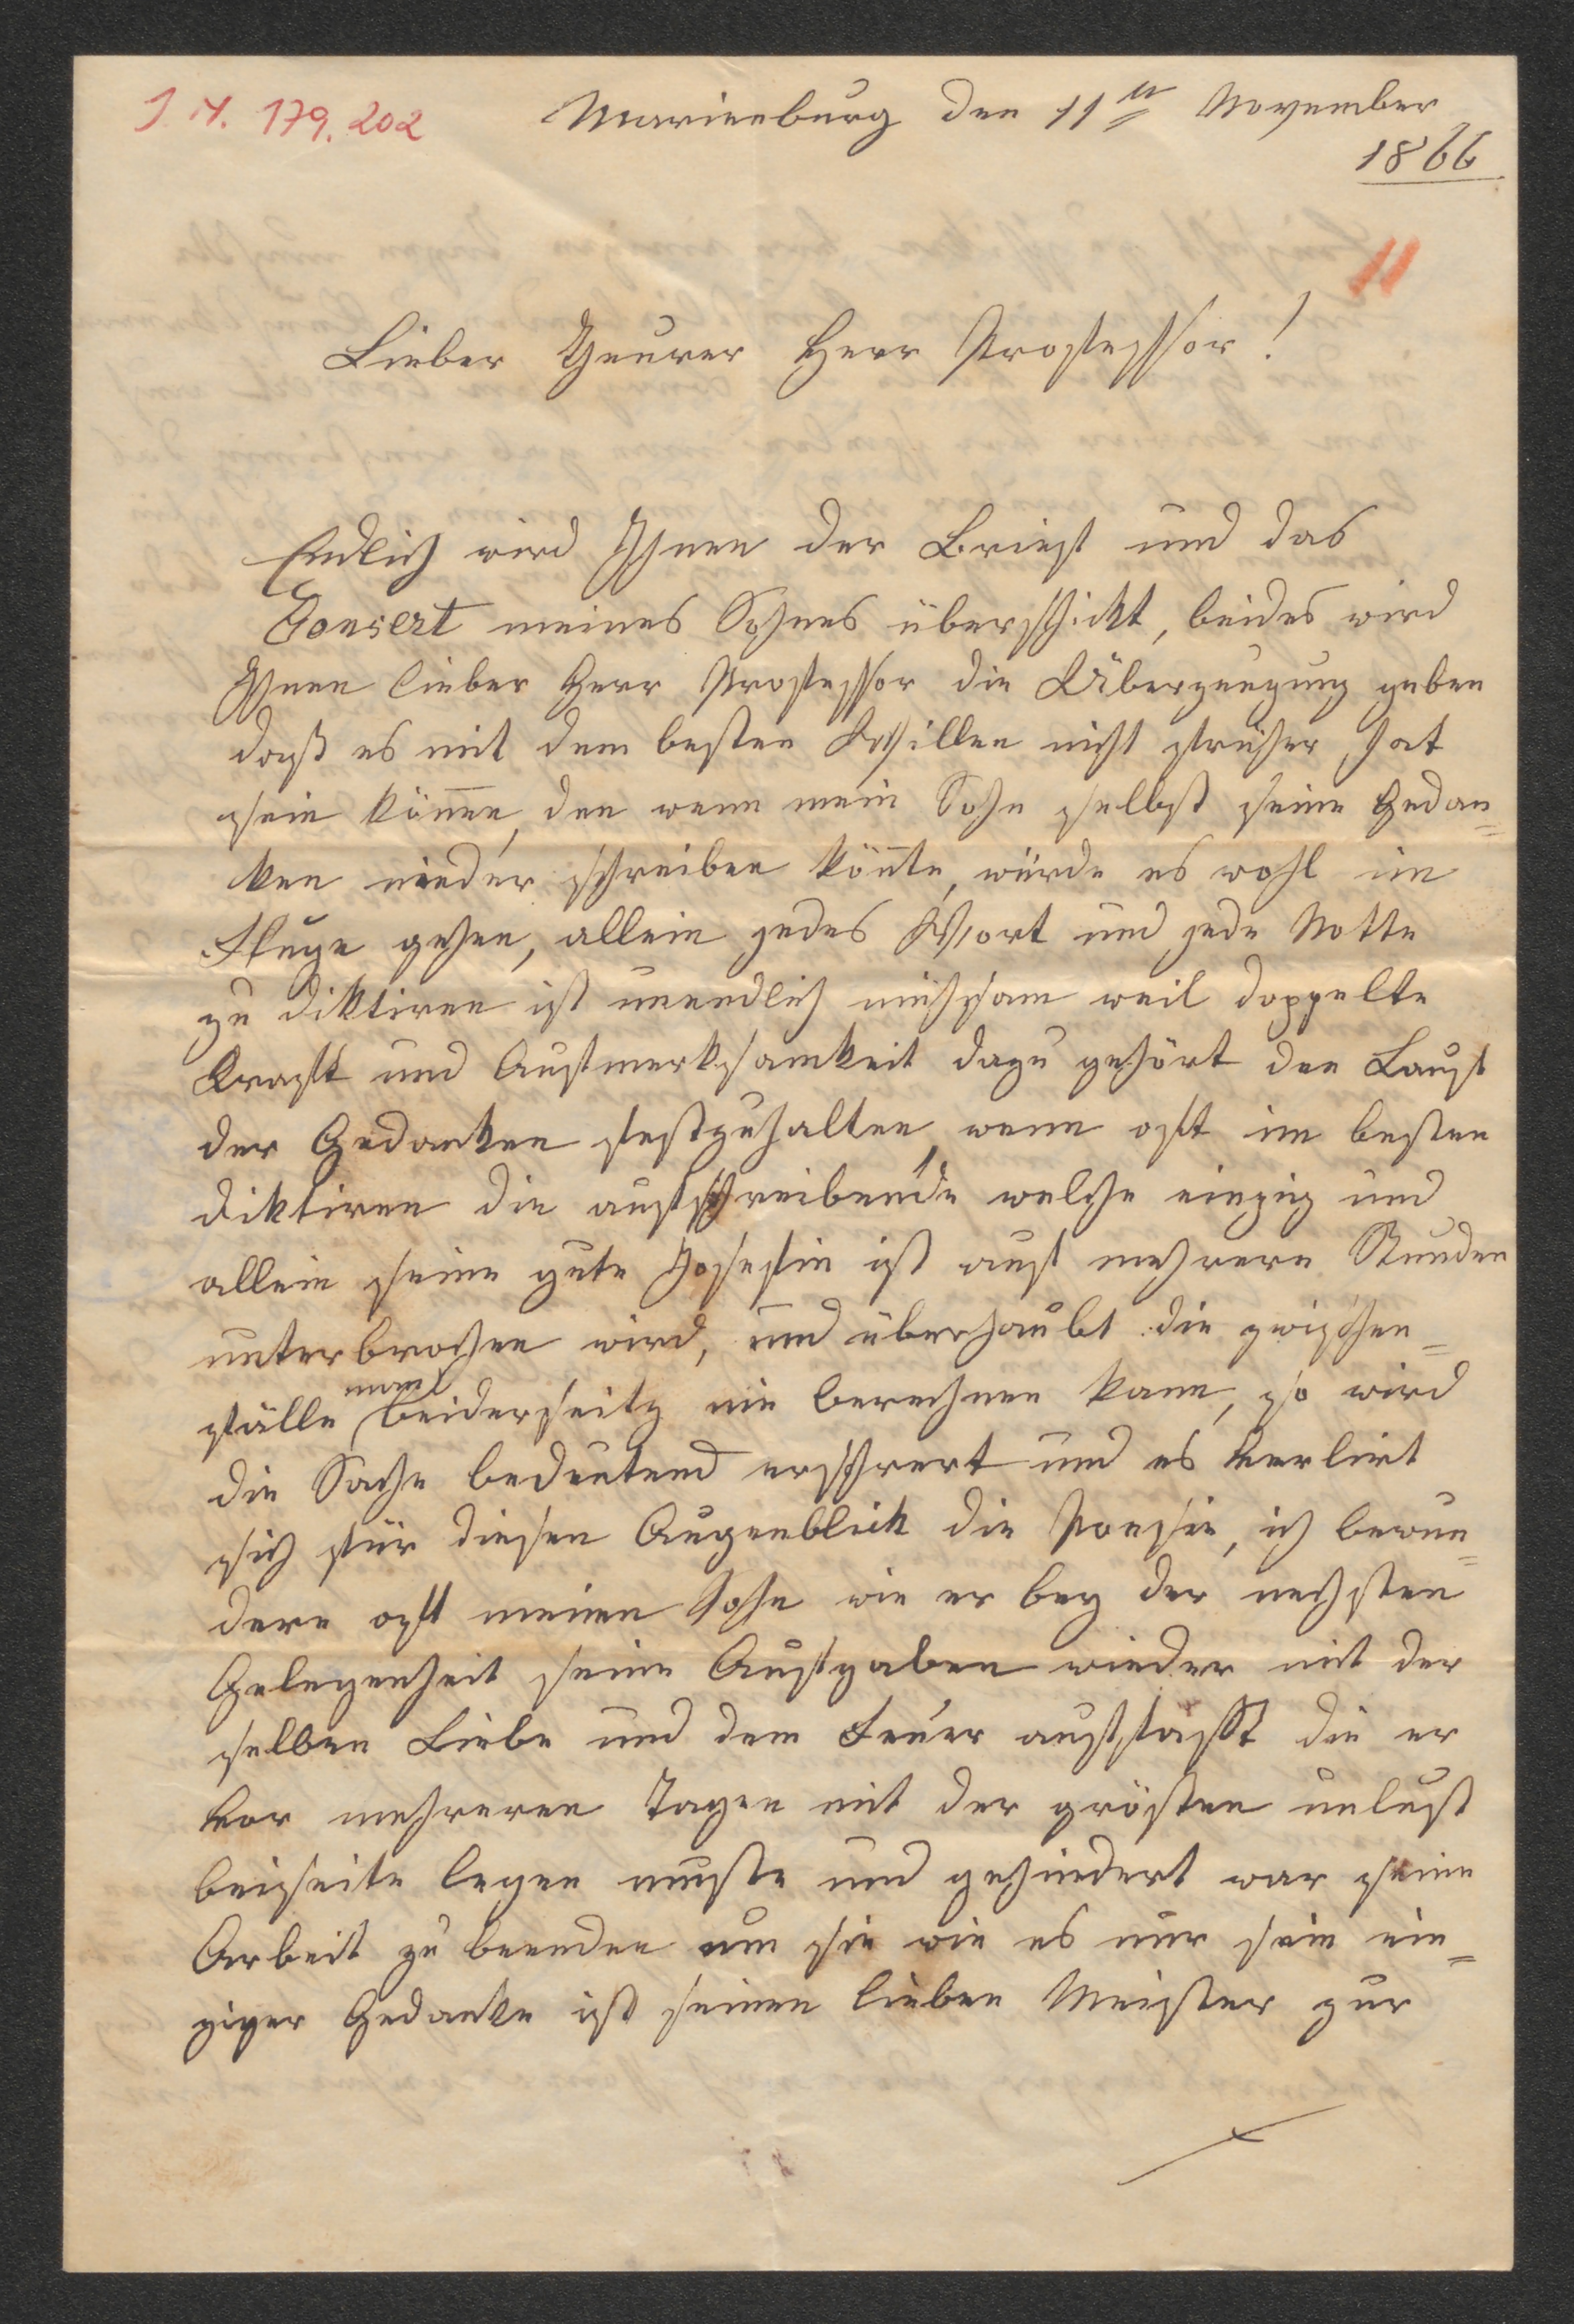 I. N. 179.202
Marienburg den 11ten November
1866
11
Lieber Theurer Herr Professor!
Endlich wird Ihnen der Brief und das
Consert meines Sohnes überschickt, beides wird
Ihnen lieber Herr Professor die Überzeugung geben
daß es mit dem besten Willen nicht früher hat
sein können, den wenn mein Sohn selbst seine Gedan=
ken nieder schreiben könnte, würde es wohl im
Fluge gehen, allein jedes Wort und jede Notte
zu diktiren ist unendlich mühsam weil doppelte
Kraft und Aufmerksamkeit dazu gehört den Lauf
der Gedanken festzuhalten, wenn oft im besten
diktiren die aufschreibende welche einzig und
allein seine gute Josefin ist auf mehrere Stunden
unterbrochen wird, und überhaubt die zwischen=
fälle man beiderseitz nie berechnen kann, so wird
die Sache bedeutend erschwert und es verlirt
sich für diesen Augenblick die Poesie, ich bewun=
dere oft meinen Sohn wie er bey der nechsten
Gelegenheit seine Aufgaben wieder mit der
selben Liebe und dem Feuer auffasst die er
vor mehreren Tagen mit der grösten unlust
beiseite legen muste und gehindert war seine
Arbeit zu beenden um sie wie es nur sein ein=
ziger Gedanke ist seinen lieben Meister zur